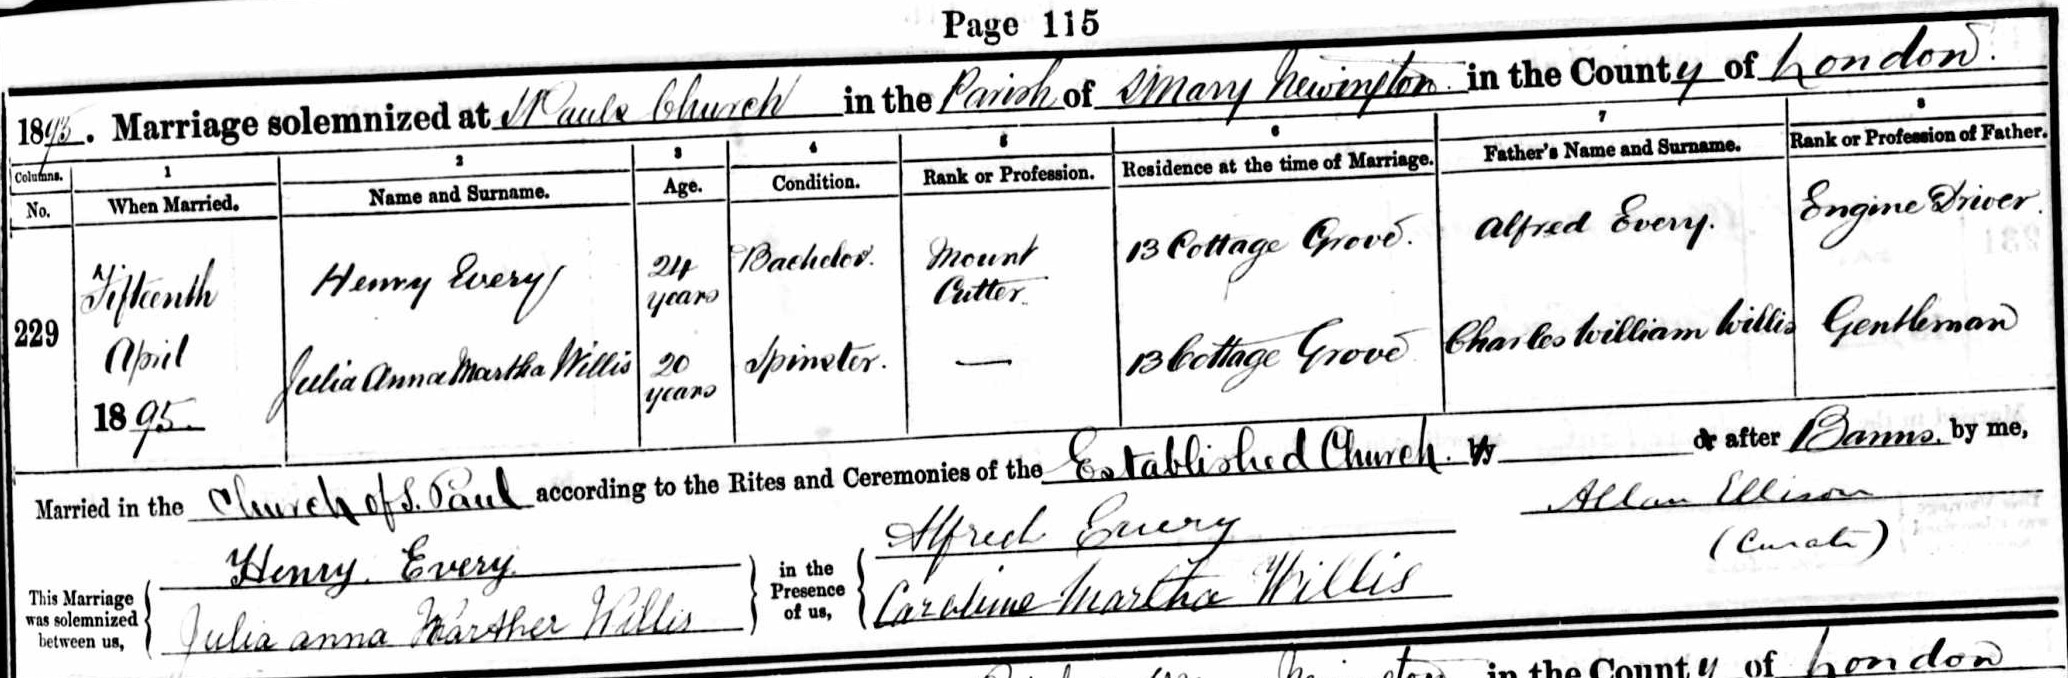 Page 115
1895. Marriage solemnized at St Pauls Church in the Parish of S Mary Newington in the County of London.
Columns. 1 2 3 4 5 6 7 8
No. When Married. Name and Surname. Age. Condition. Rank or Profession. Residence at the time of Marriage. Father's Name and Surname. Rank or Profession of Father.
229 Fifteenth April 1895. Henry Every 24 years Bachelor. Mount Cutter. 13 Cottage Grove. Alfred Every. Engine Driver.
Julia Anna Martha Willis 20 years Spinster. — 13 Cottage Grove Charles William Willis Gentleman
Married in the Church of S. Paul according to the Rites and Ceremonies of the Established Church. by or after Banns. by me,
Allan Ellison
(Curate)
This Marriage was solemnized between us,
Henry Every
Julia anna Marther Willis
in the Presence of us,
Alfred Every
Caroline Martha Willis
in the County of London